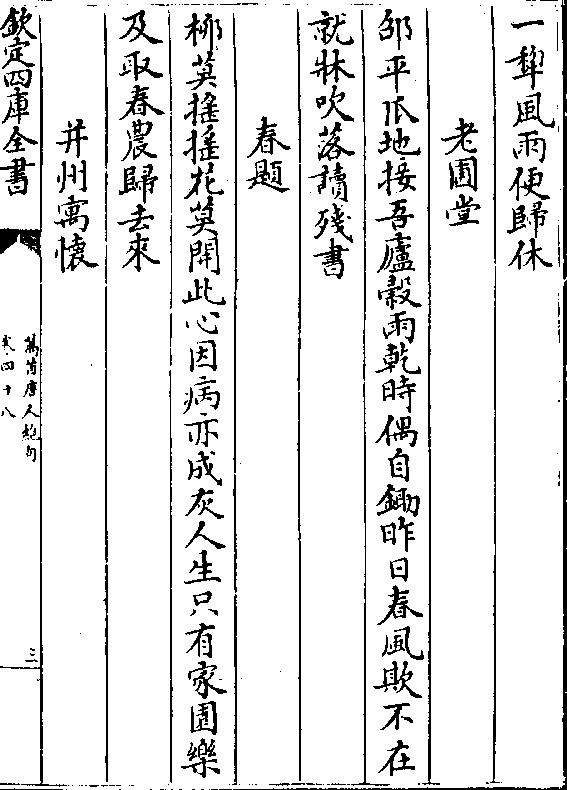 一犂風雨便歸休
老圃堂
邵平瓜地接吾廬榖雨乾時偶自鋤昨日春風欺不在
就牀吹落讀殘書
春題
栁莫摇摇花莫開此心因病亦成灰人生只有家園樂
及取春農歸去來
并州寓懷
欽定四庫全書
萬首唐人絶句
卷四十八
三